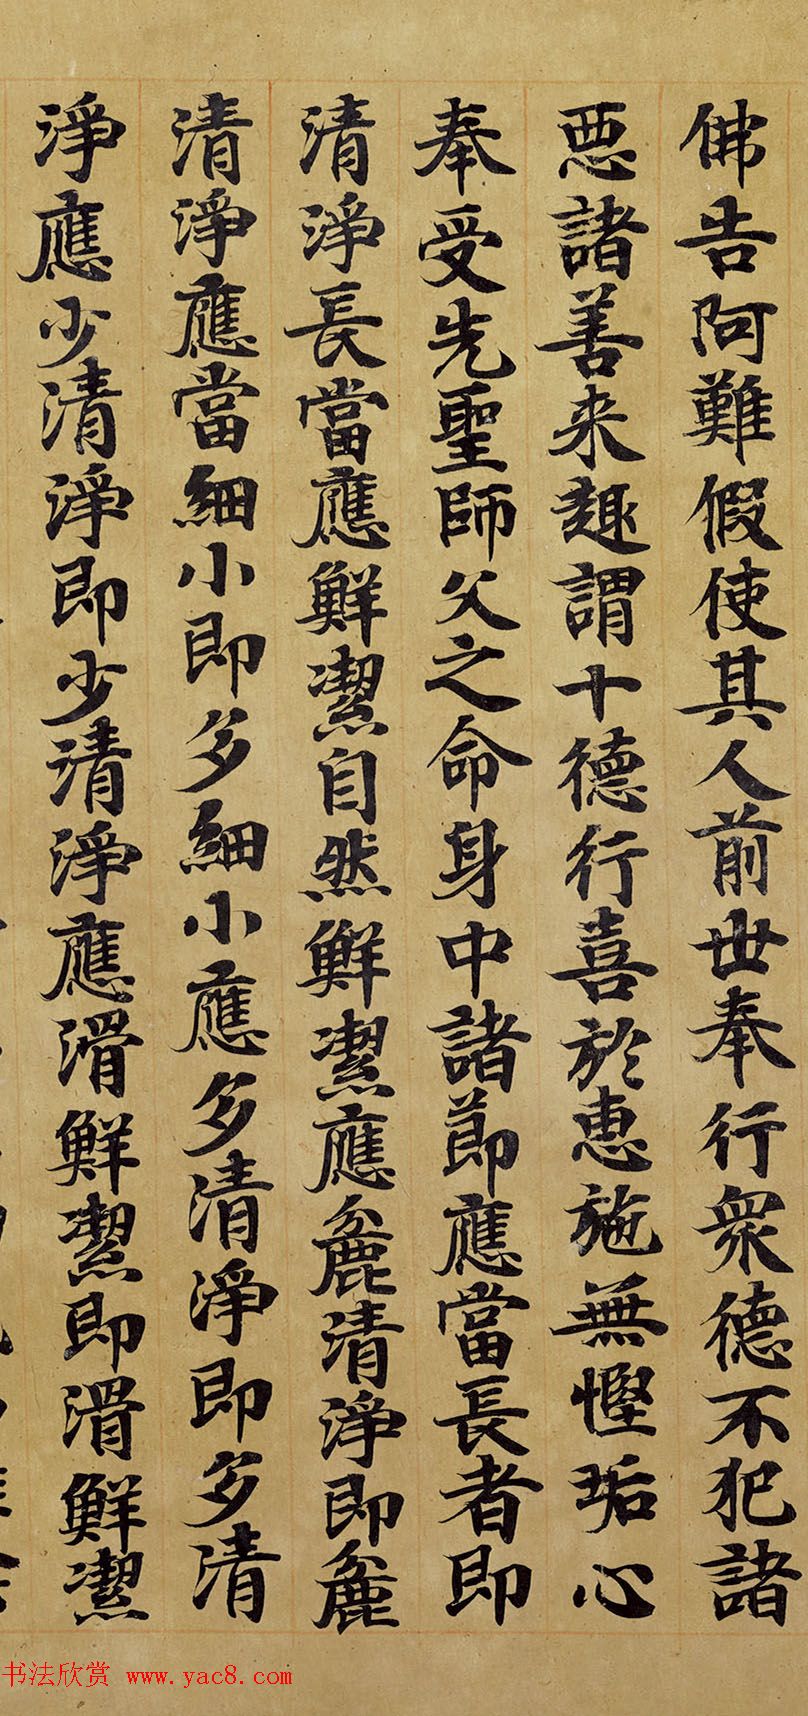 佛告阿難假使其人前世奉行衆德不犯諸
惡諸善来趣謂十德行喜於恵施無慳垢心
奉受先聖師父之命身中諸節應當長者即
清淨長當應鮮潔自然鮮潔應麁清淨即麁
清淨應當細小即多細小應多清淨即多清
淨應少清淨即少清淨應滑鮮潔即滑鮮潔
书法欣赏 www.yac8.com